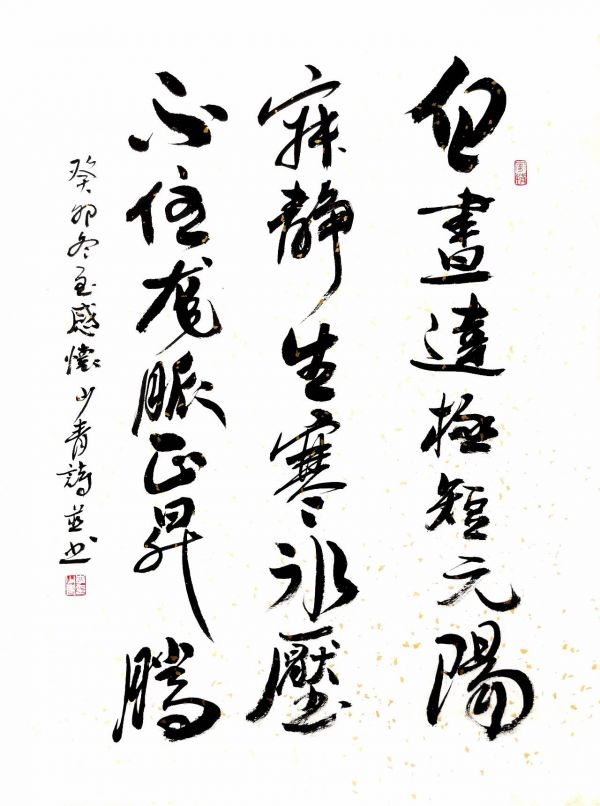 白晝達極短元陽
寂靜生寒冰壓
不住龍脈正昇騰
癸卯冬至感懷山青詩並書